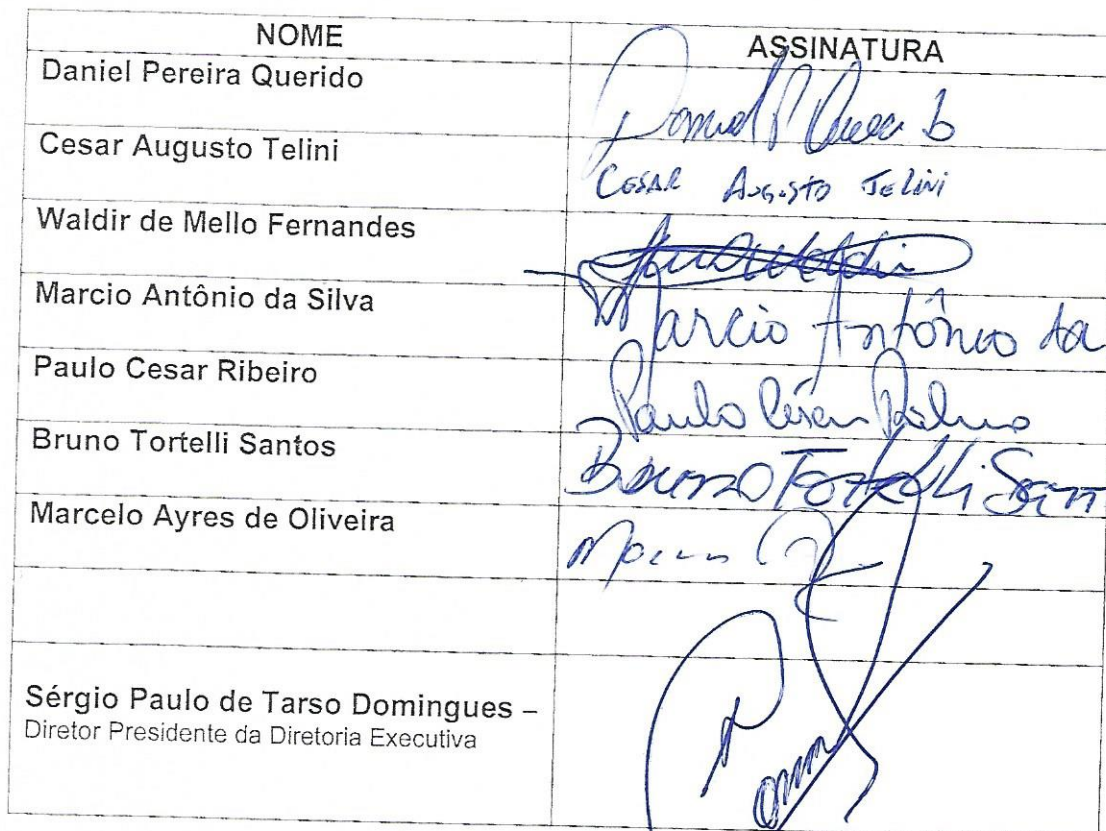 NOME ASSINATURA
Daniel Pereira Querido Daniel P
Cesar Augusto Telini CESAR AUGUSTO TELINI
Waldir de Mello Fernandes
Marcio Antônio da Silva Marcio Antônio da
Paulo Cesar Ribeiro Paulo César
Bruno Tortelli Santos Bruno Tortelli Sant
Marcelo Ayres de Oliveira
Sérgio Paulo de Tarso Domingues –
Diretor Presidente da Diretoria Executiva